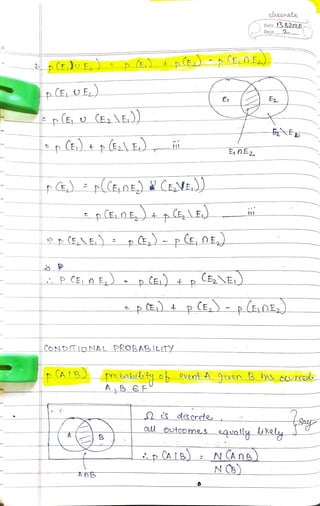 classmate
Date 13 8 2020
Page 2
2. p(E₁ ∪ E₂) = p(E₁) + p(E₂) - p(E₁ ∩ E₂)
p(E₁ ∪ E₂)
E₁ E₂
= p(E₁ ∪ (E₂\E₁))
E₂\E₁
= p(E₁) + p(E₂\E₁) iii
E₁∩E₂
p(E₂) = p((E₁∩E₂) ∪ (E₂\E₁))
= p(E₁∩E₂) + p(E₂\E₁) iii
⇒ p(E₂\E₁) = p(E₂) - p(E₁∩E₂)
∴ P(E₁ ∩ E₂) = p(E₁) + p(E₂\E₁)
= p(E₁) + p(E₂) - p(E₁∩E₂)
CONDITIONAL PROBABILITY
p(A|B) probability of event A given B has occurred
A, B ∈ F
S
Ω is discrete
all outcomes equally likely } Say
A B
∴ p(A|B) = N(A∩B)
N(B)
A∩B